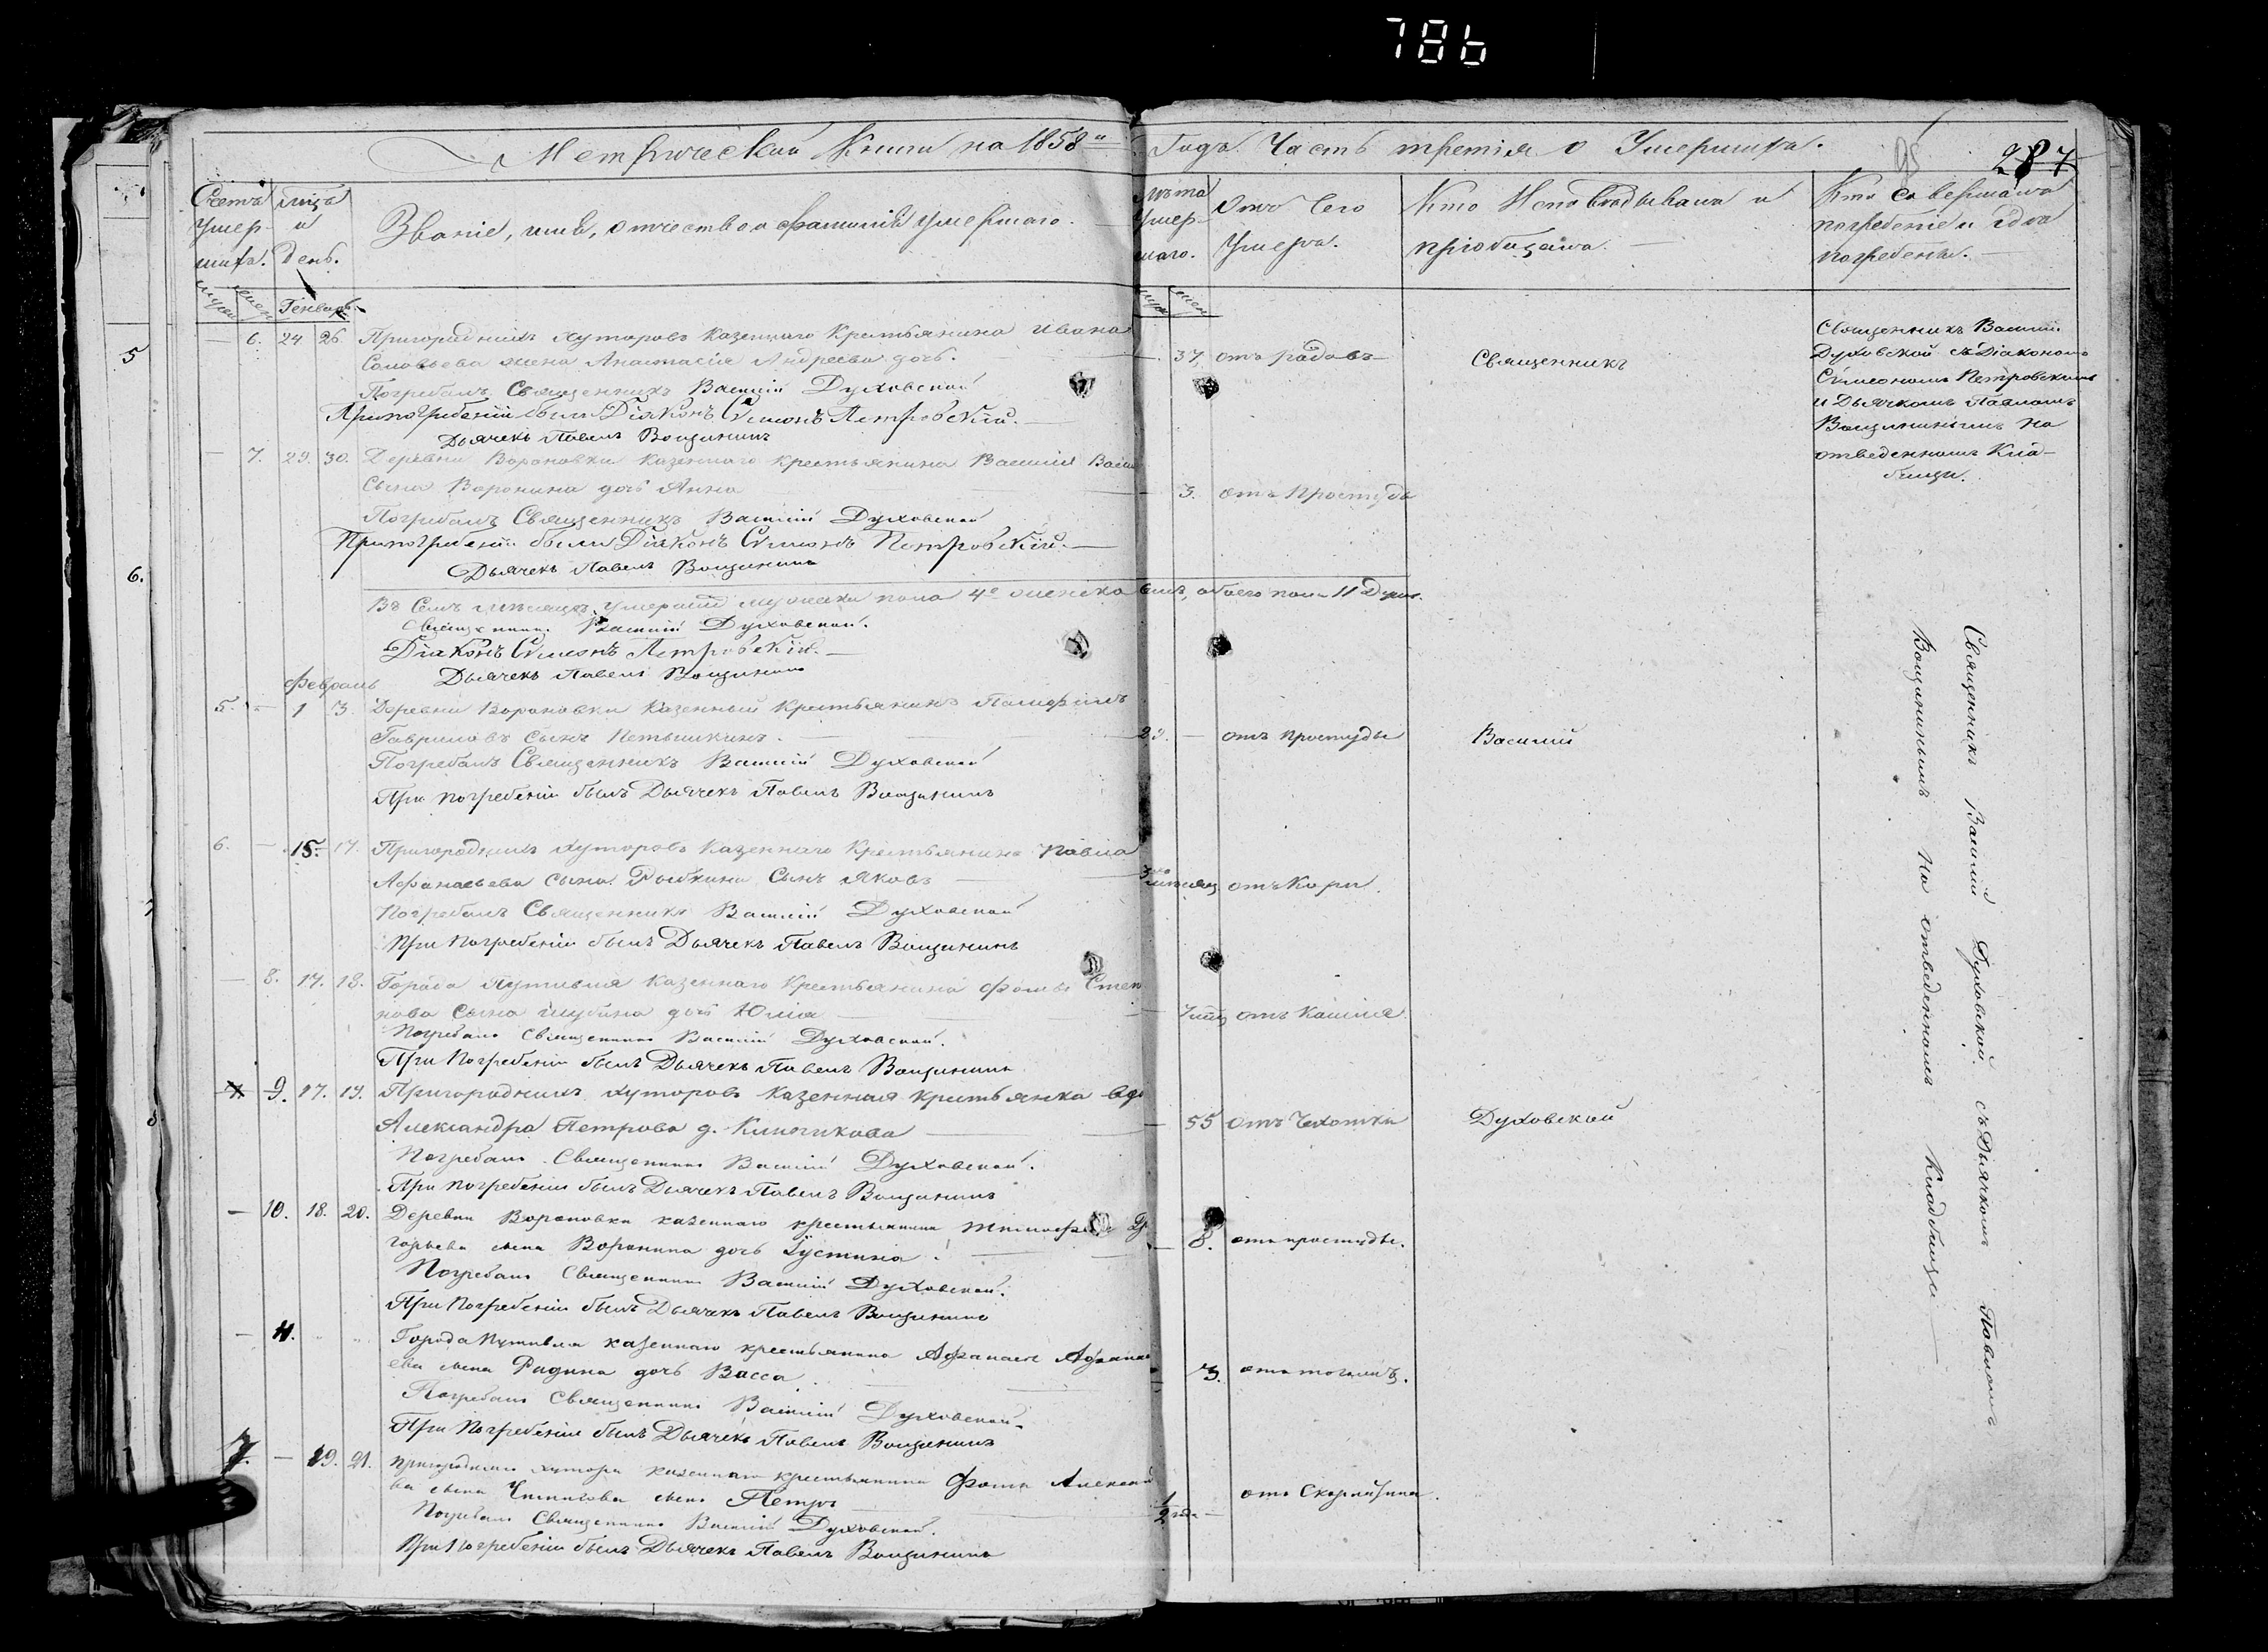 786
Метрической Книги на 1858й Годъ Часть третія о Умершихъ.
95
287
Счетъ умер-шихъ.
Мѣсяцъ и День.
Званіе, имя, отчество и фамилія умершаго.
Лѣта умер-шаго.
Отъ чего умеръ.
Кто Исповѣдывалъ и пріобщалъ.
Кто совершалъ погребеніе и гдѣ погребены.
Генварь
5
6.
— 6. 24 26 Пригородныхъ хуторовъ казеннаго крестьянина Ивана
Соловьева жена Анастасія Андреева дочь. — 37. отъ родовъ Священникъ
Погребалъ Священникъ Василій Духовской
При погребеніи были Діаконъ Сѵмеонъ Петровскій.
Дьячекъ Павелъ Вощининъ
Священникъ Василій
Духовской съ Діакономъ
Сѵмеономъ Петровскимъ
и Дьячкомъ Павломъ
Вощининымъ на
отведенномъ Клад-
бищи.
— 7. 29. 30. Деревни Вороновки казеннаго крестьянина Василія Васил
Сына Воронина дочь Анна — 3. отъ простуды
Погребалъ Священникъ Василій Духовской
При погребеніи были Діаконъ Сѵмеонъ Петровскій.
Дьячекъ Павелъ Вощининъ
Въ семъ мѣсяцѣ умершихъ мужеска пола 4е женска обоего пола 11 Душъ.
Священникъ Василій Духовской.
Діаконъ Сѵмеонъ Петровскій.
Дьячекъ Павелъ Вощининъ
Февраль
5. — 1 3. Деревни Вороновки Казенный Крестьянинъ Памфилъ
Гавриловъ Сынъ Петышкинъ. 29. — отъ простуды Василій
Погребалъ Священникъ Василій Духовской
При погребеніи былъ Дьячекъ Павелъ Вощининъ
6. — 15. 17. Пригородныхъ хуторовъ Казеннаго Крестьянина Павла
Афанасьева сына Рыбкина Сынъ Яковъ 3хъ мѣсяц отъ Кори.
Погребалъ Священникъ Василій Духовской
При погребеніи былъ Дьячекъ Павелъ Вощининъ
— 8. 17. 18. Города Путивля Казеннаго Крестьянина Фомы Степ
нова Сына Шубина дочь Юлія — отъ Кашля
Погребалъ Священникъ Василій Духовской.
При погребеніи былъ Дьячекъ Павелъ Вощининъ
— 9. 17. 19. Пригородныхъ хуторовъ Казенная крестьянка вдо
Александра Петрова д. — 55 отъ Чахотки Духовской
Погребалъ Священникъ Василій Духовской.
При погребеніи былъ Дьячекъ Павелъ Вощининъ
— 10. 18. 20. Деревни Вороновки казеннаго крестьянина Гри
горьева сына Воронина дочь Іустина. — 8. отъ простуды.
Погребалъ Священникъ Василій Духовской.
При погребеніи былъ Дьячекъ Павелъ Вощининъ
— 11. " " Города Путивля казеннаго крестьянина Афанасія Афанась
ева сына Радина дочь Васса. 3.
Погребалъ Священникъ Василій Духовской.
При погребеніи былъ Дьячекъ Павелъ Вощининъ
7. — 19. 21. Пригородныхъ хуторовъ казеннаго крестьянина Фомы Алексѣе
ва сына сынъ Петръ 1/2 года —
Погребалъ Священникъ Василій Духовской.
При погребеніи былъ Дьячекъ Павелъ Вощининъ
Священникъ Василій Духовской съ Дьячкомъ Павломъ
Вощининымъ На отведенномъ Кладбищи —